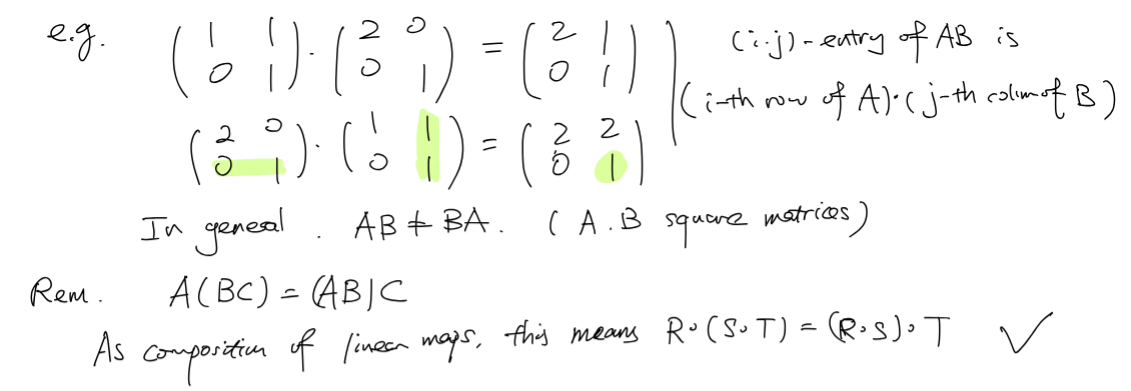 e.g. ( 1 1 0 1 ) · ( 2 0 0 1 ) = ( 2 1 0 1 ) (i.j) - entry of AB is
(i-th row of A)·(j-th colum of B)
( 2 0 0 1 ) · ( 1 1 0 1 ) = ( 2 2 0 1 )
In general . AB ≠ BA. ( A.B square matrices)
Rem. A(BC) = (AB)C
As composition of linear maps, this means R∘(S∘T) = (R∘S)∘T ✓